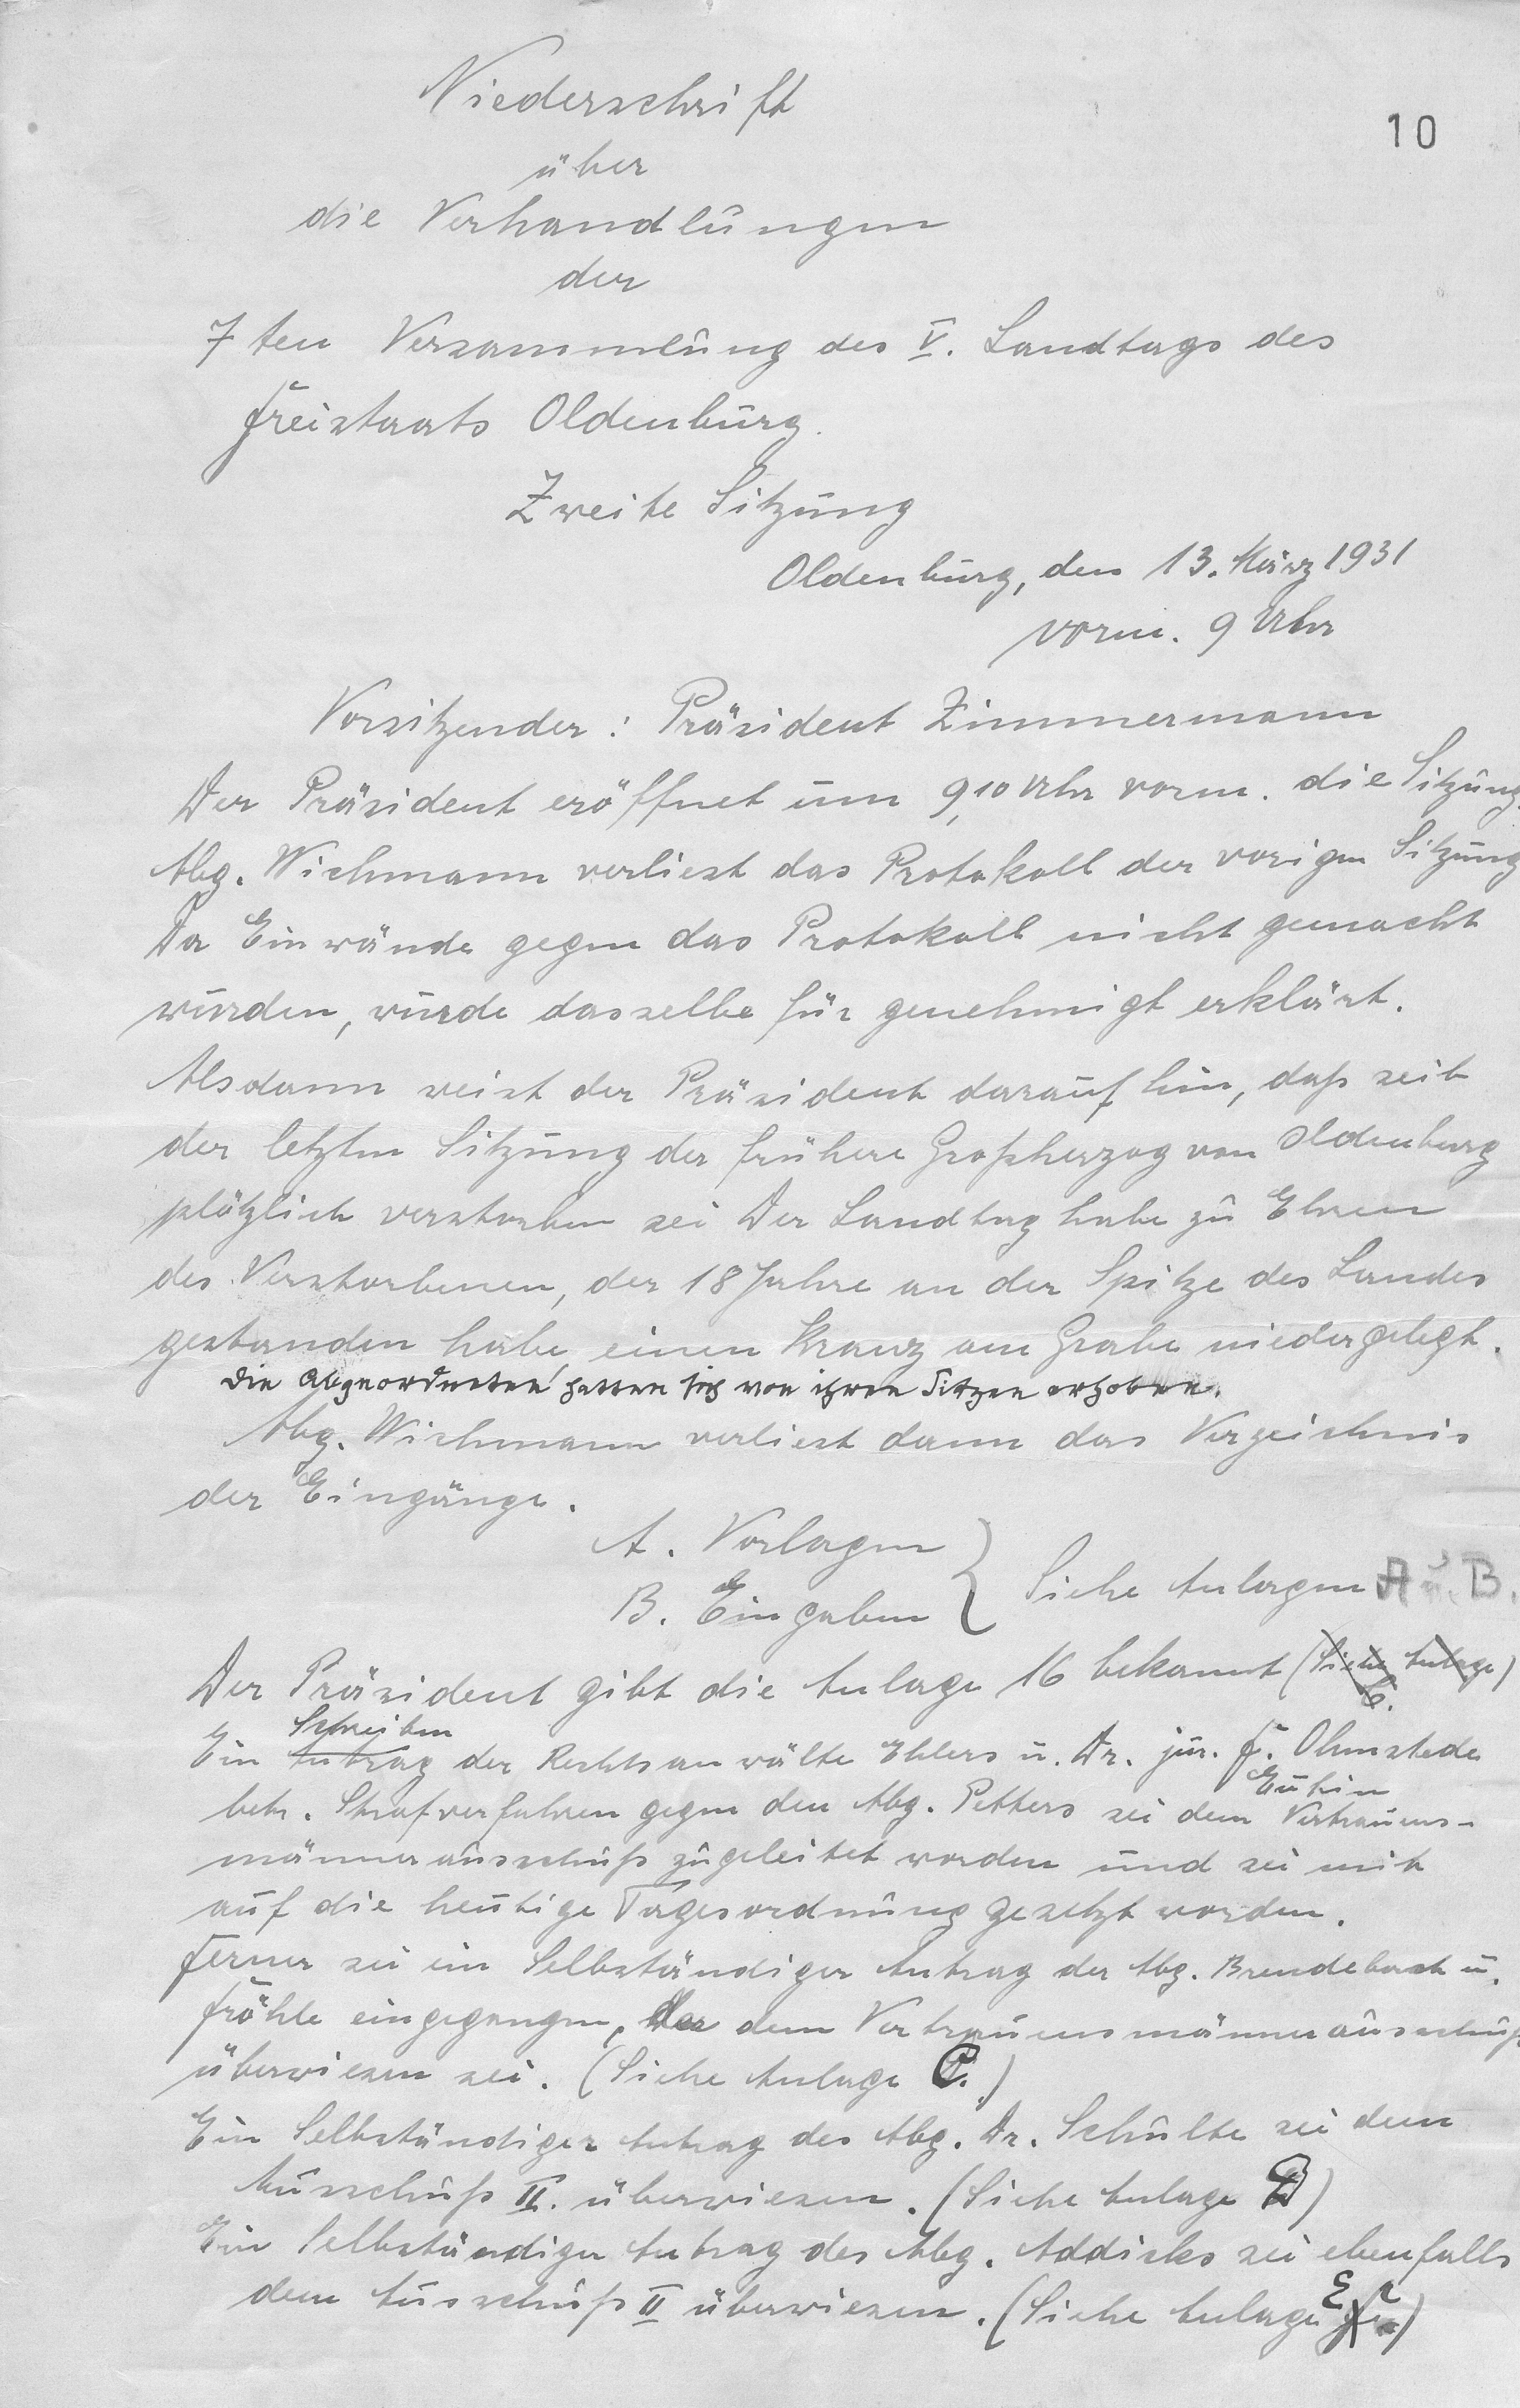 10
Niederschrift
über
die Verhandlungen
der
7ten Versammlung des V. Landtags des
Freistaats Oldenburg.
Zweite Sitzung
Oldenburg, den 13. März 1931
vorm. 9 Uhr
Vorsitzender: Präsident Zimmermann
Der Präsident eröffnet um 9,10 Uhr vorm. die Sitzung.
Abg. Wichmann verliest das Protokoll der vorigen Sitzung
Da Einwände gegen das Protokoll nicht gemacht
wurden, wurde dasselbe für genehmigt erklärt.
Alsdann weist der Präsident darauf hin, daß seit
der letzten Sitzung der frühere Großherzog von Oldenburg
plötzlich verstorben sei Der Landtag habe zu Ehren
des Verstorbenen, der 18 Jahre an der Spitze des Landes
gestanden habe, einen Kranz am Grabe niedergelegt.
Die Abgeordneten hatten sich von ihren Sitzen erhoben.
Abg. Wichmann verliest dann das Verzeichnis
der Eingänge.
A. Vorlagen
B. Eingaben } Siehe Anlagen A u. B.
Der Präsident gibt die Anlage 16 bekannt (Siehe Anlage C.)
Schreiben
Ein Antrag der Rechtsanwälte Ehlers u. Dr. jur. F. Ohmstede
Eutin
betr. Strafverfahren gegen den Abg. Petters sei dem Vertrauens-
männerausschuß zugeleitet worden und sei mit
auf die heutige Tagesordnung gesetzt worden.
Ferner sei ein Selbständiger Antrag der Abg. Brendebach u.
Fröhle eingegangen, der dem Vertrauensmännerausschuß
überwiesen sei. (Siehe Anlage C.)
Ein Selbständiger Antrag des Abg. Dr. Schulte sei dem
Ausschuß II. überwiesen. (Siehe Anlage D)
Ein Selbständiger Antrag des Abg. Addicks sei ebenfalls
dem Ausschuß II überwiesen. (Siehe Anlage E)